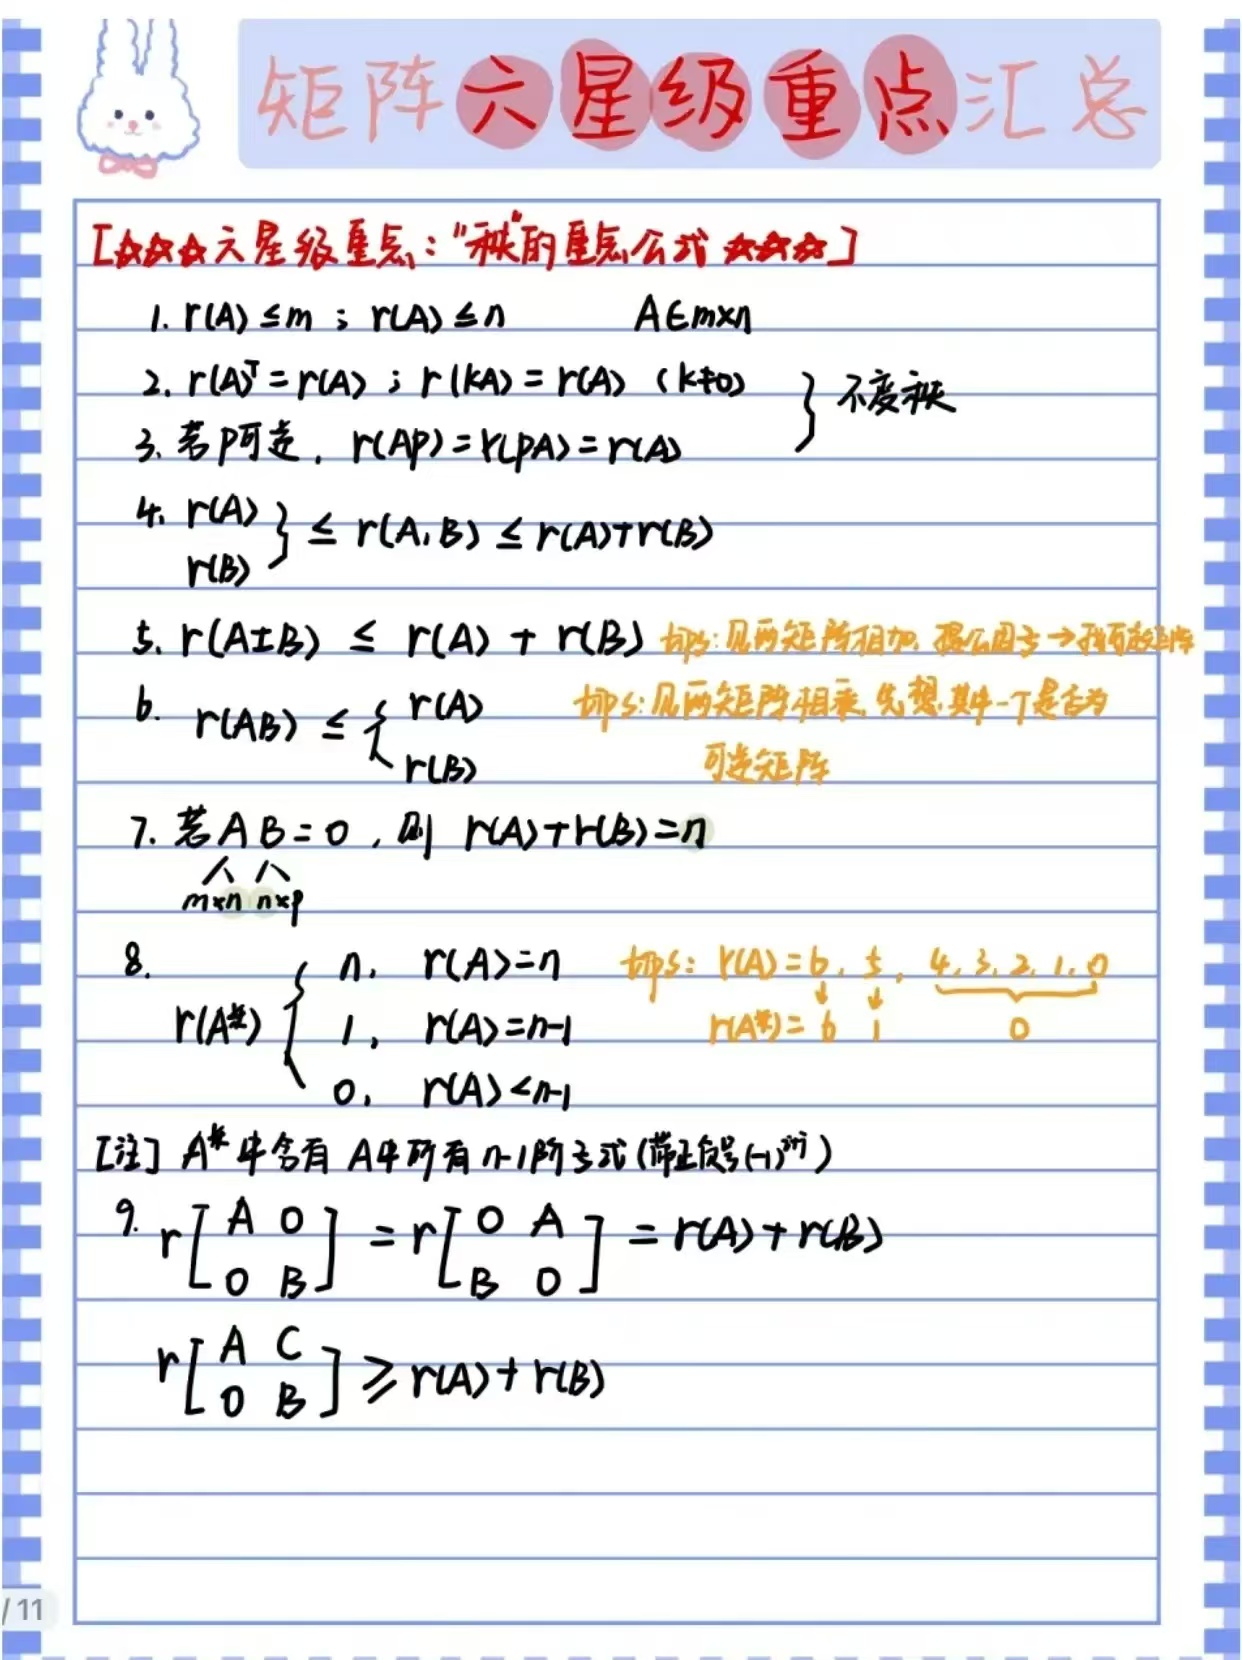 矩阵六星级重点汇总
[☆☆☆六星级重点:"秩"的重点公式 ☆☆☆]
1. r(A) ≤ m ; r(A) ≤ n A∈m×n
2. r(A)ᵀ = r(A) ; r(kA) = r(A) (k≠0)
} 不变秩
3. 若P可逆, r(AP) = r(PA) = r(A)
4. r(A)
r(B) } ≤ r(A,B) ≤ r(A)+r(B)
5. r(A±B) ≤ r(A) + r(B) tips:见两矩阵相加,提公因子→
6. r(AB) ≤ { r(A) tips:见两矩阵相乘,先想其中一个是否为
r(B) 可逆矩阵
7. 若AB=0,则 r(A)+r(B)=n
m×n n×p
8. r(A*) { n, r(A)=n tips: r(A)=6, 5, 4, 3, 2, 1, 0
1, r(A)=n-1 r(A*)= 6 1 0
0, r(A)<n-1
[注] A*中含有 A中所有n-1阶子式(带正负号(-1)ⁱ⁺ʲ)
9. r[A 0
0 B] = r[0 A
B 0] = r(A)+r(B)
r[A C
0 B] ≥ r(A)+r(B)
/11